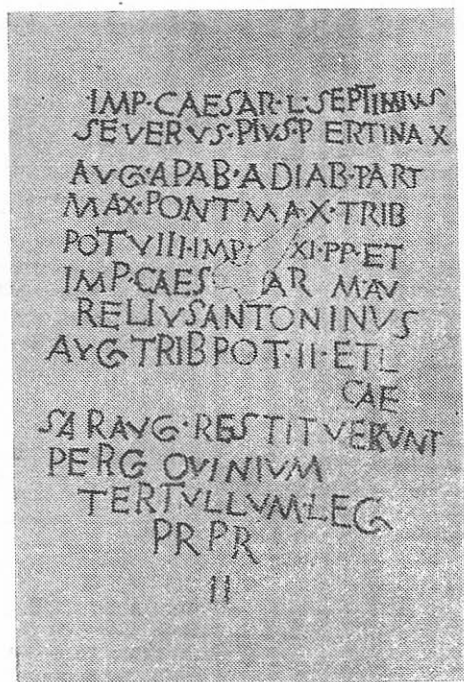 IMP·CAESAR·L·SEPTIMIVS
SEVERVS·PIVS·P ERTINAX
AVG·APAB·ADIAB·PART
MAX·PONT MAX·TRIB
POT VIIII·IMP· XI·PP·ET
IMP·CAES AR M·AV
RELIVSANTONINVS
AVG·TRIB POT·II·ET L
CAE
SARAVG·RESTITVERVNT
PERG OVINIVM
TERTVLLVM·LEG
PR PR
II